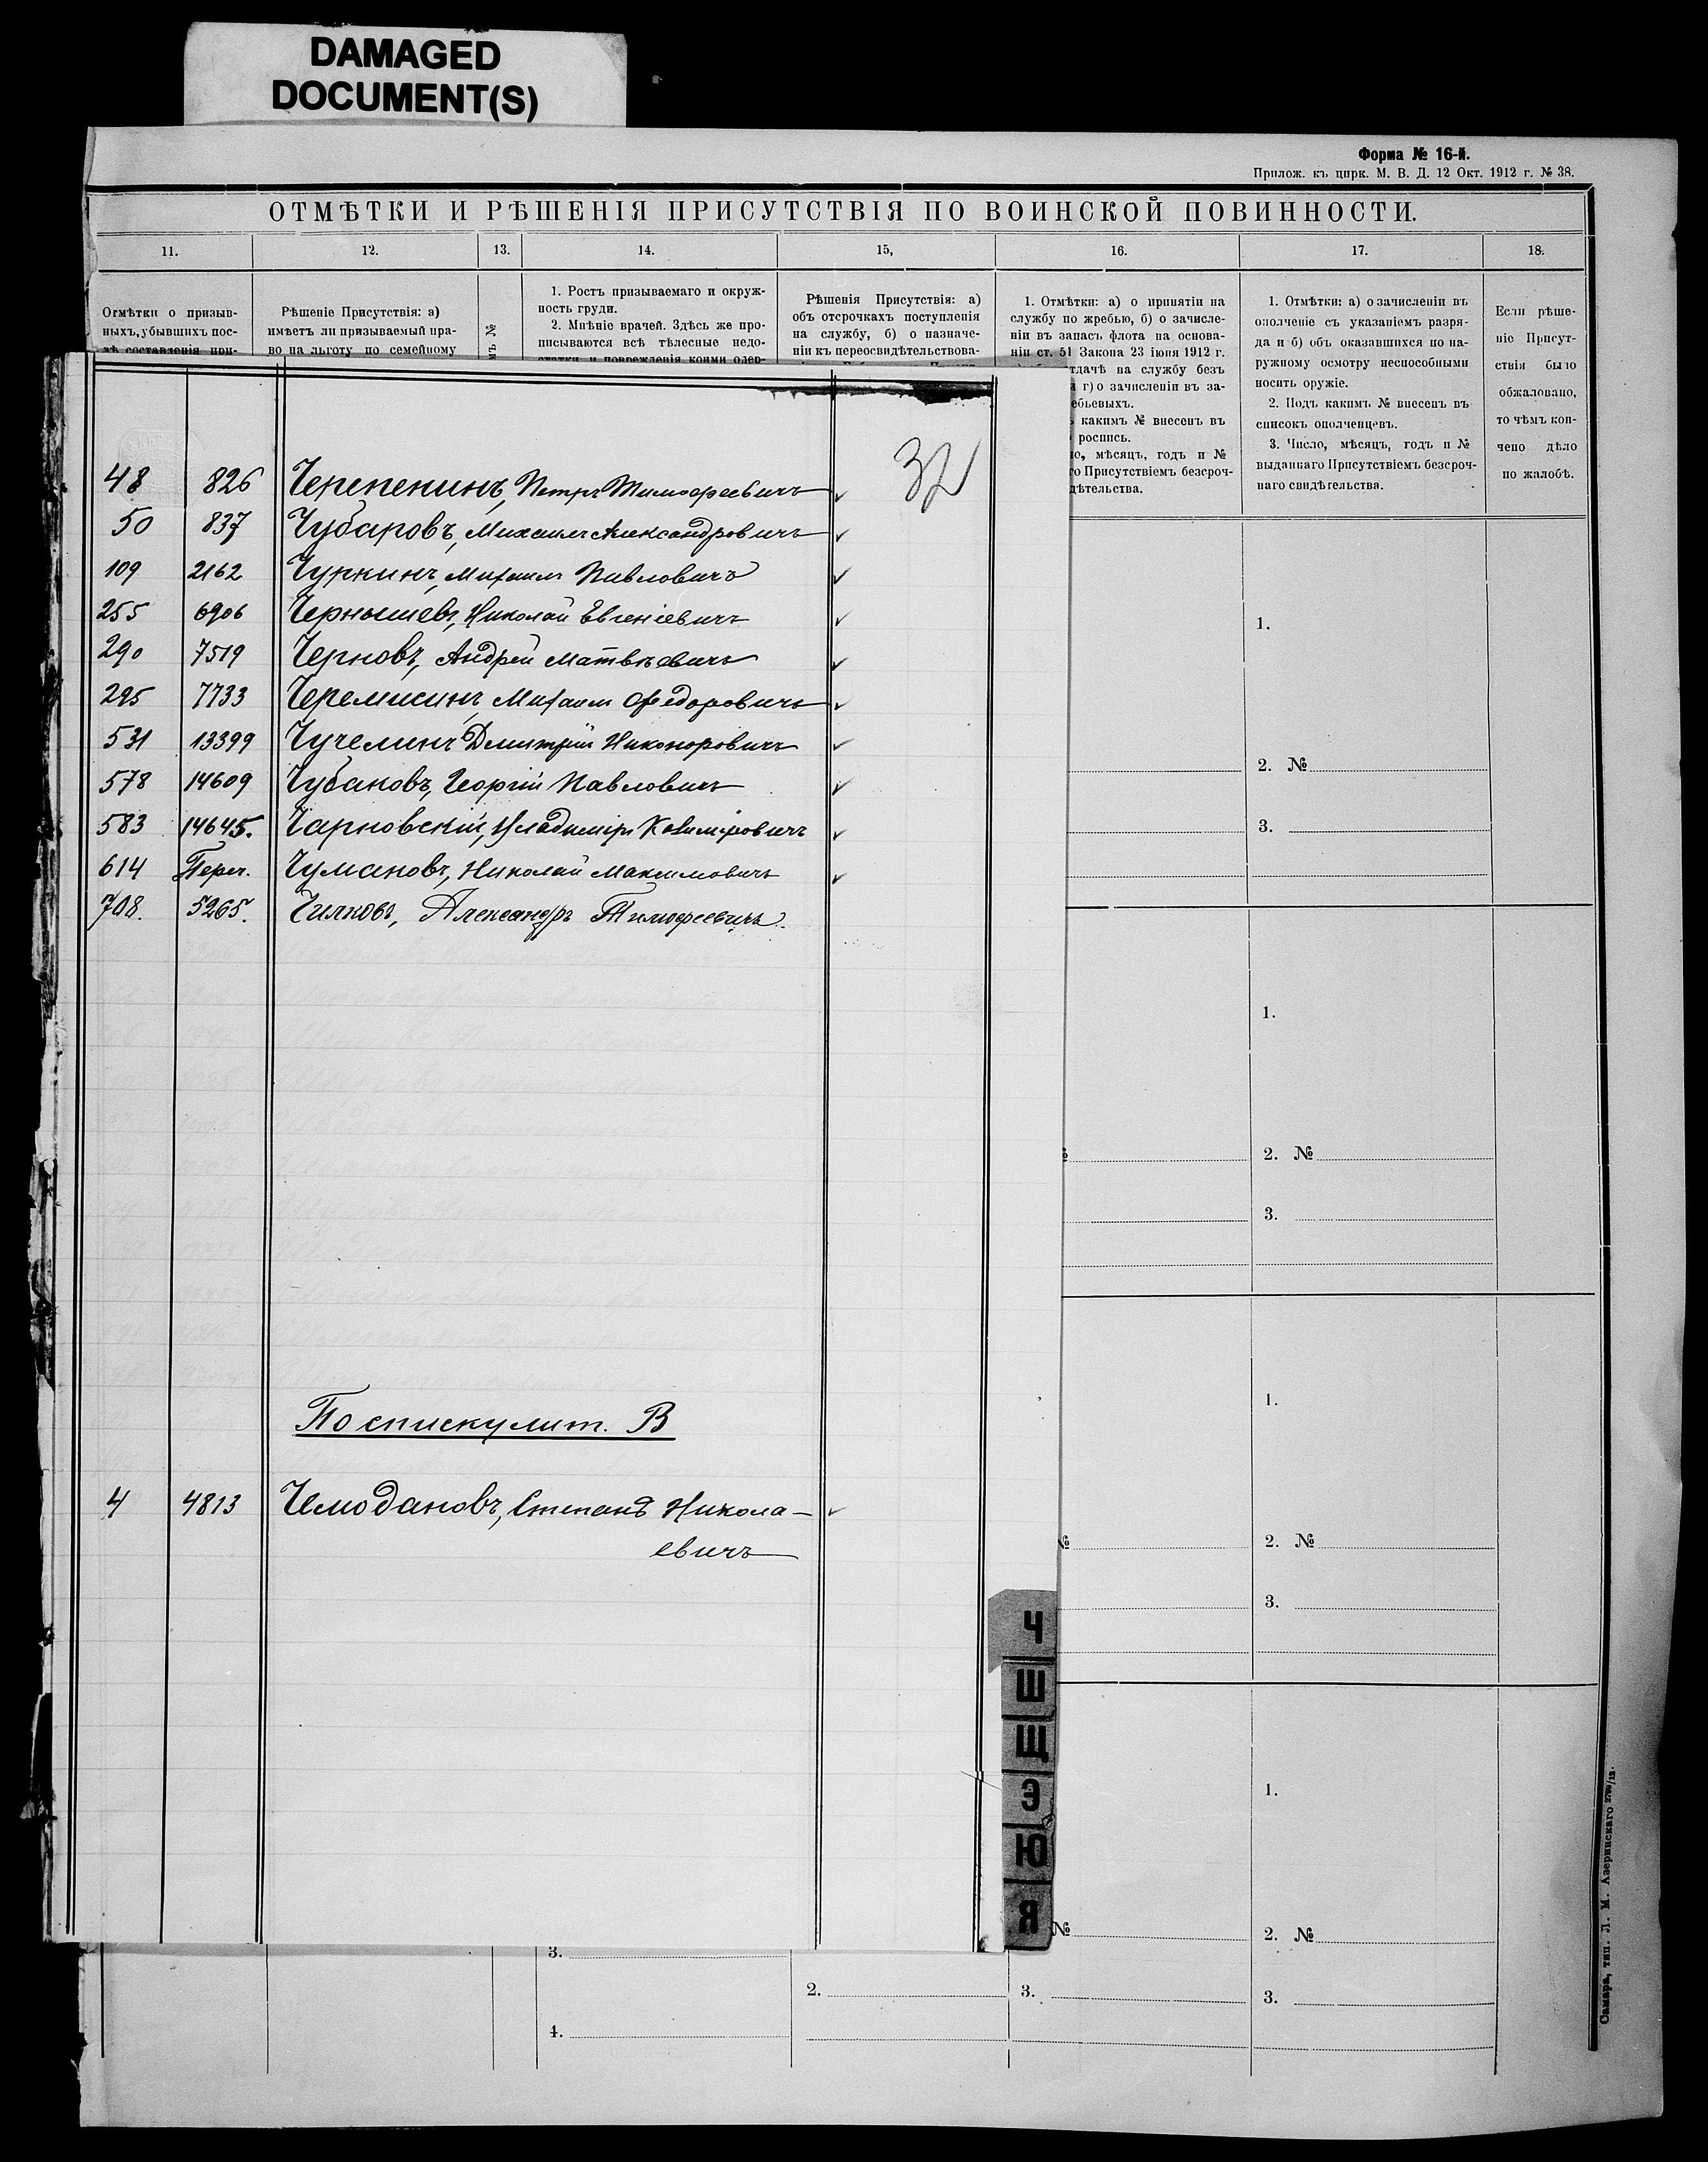 DAMAGED
DOCUMENT(S)
Форма № 16-й.
Прилож. къ цирк. М. В. Д. 12 Окт. 1912 г. № 38.
ОТМѢТКИ И РѢШЕНІЯ ПРИСУТСТВІЯ ПО ВОИНСКОЙ ПОВИННОСТИ.
11. 12. 13. 14. 15, 16. 17. 18.
Отмѣтки о призыв-
ныхъ, убывшихъ пос-
лѣ составленія при-
Рѣшеніе Присутствія: а)
имѣетъ ли призываемый пра-
во на льготу по семейному
мъ №
1. Ростъ призываемаго и окруж-
ность груди.
2. Мнѣніе врачей. Здѣсь же про-
писываются всѣ тѣлесные недо-
статки и поврежденія коими одер-
Рѣшенія Присутствія: а)
объ отсрочкахъ поступленія
на службу, б) о назначе-
ніи къ переосвидѣтельствова-
1. Отмѣтки: а) о принятіи на
службу по жребью, б) о зачисле-
ніи въ запасъ флота на основа-
ніи ст. 51 Закона 23 іюня 1912 г.
тдачѣ на службу безъ
г) о зачисленіи въ за-
ебьевыхъ.
какимъ № внесенъ въ
роспись.
ло, мѣсяцъ, годъ и №
го Присутствіемъ безсроч-
дѣтельства.
1. Отмѣтки: а) о зачисленіи въ
ополченіе съ указаніемъ разря-
да и б) объ оказавшихся по на-
ружному осмотру неспособными
носить оружіе.
2. Подъ какимъ № внесенъ въ
списокъ ополченцевъ.
3. Число, мѣсяцъ, годъ и №
выданнаго Присутствіемъ безсроч-
наго свидѣтельства.
Если рѣше-
ніе Присут-
ствія было
обжаловано,
то чѣмъ кон-
чено дѣло
по жалобѣ.
32
48 826 Черепенинъ, Петръ Тимофеевичъ
50 837 Чубаровъ, Михаилъ Александровичъ
109 2162 Чуркинъ, Михаилъ Павловичъ
255 6906 Чернышевъ, Николай Евгеніевичъ
290 7519 Черновъ, Андрей Матвѣевичъ
295 7733 Черемисинъ, Михаилъ Федоровичъ
531 13399 Чучелинъ Дмитрій Никоноровичъ
578 14609 Чубаковъ, Георгій Павловичъ
583 14645. Чарновскій, Владиміръ Казиміровичъ
614 Переч. Чумановъ, Николай Максимовичъ
708. 5265. Чилковъ, Александръ Тимофеевичъ.
По списку лит. В
4 4813 Чемодановъ, Степанъ Никола-
евичъ
Ч
Ш
Щ
Э
Ю
Я
1.
2. №
3.
1.
2. №
3.
1.
№ 2. №
3.
1.
№ 2. №
3.
2. 3. 3.
4.
Самара, тип. Л. М. Азеринскаго